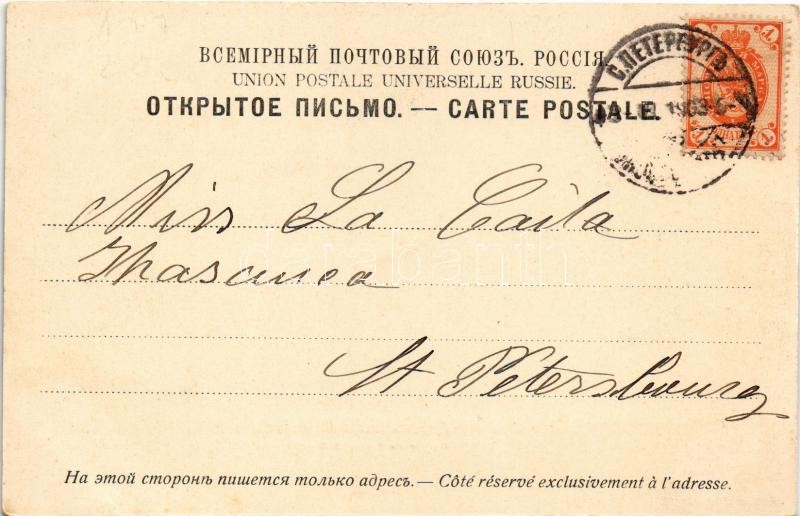 ВСЕМІРНЫЙ ПОЧТОВЫЙ СОЮЗЪ. РОССІЯ
UNION POSTALE UNIVERSELLE RUSSIE.
ОТКРЫТОЕ ПИСЬМО. — CARTE POSTALE.
С.ПЕТЕРБУРГЪ
1
МАРК
1
1
Miss La Caila
Thasanea
St Petersbourg
darabanth
На этой сторонѣ пишется только адресъ. — Côté réservé exclusivement à l'adresse.